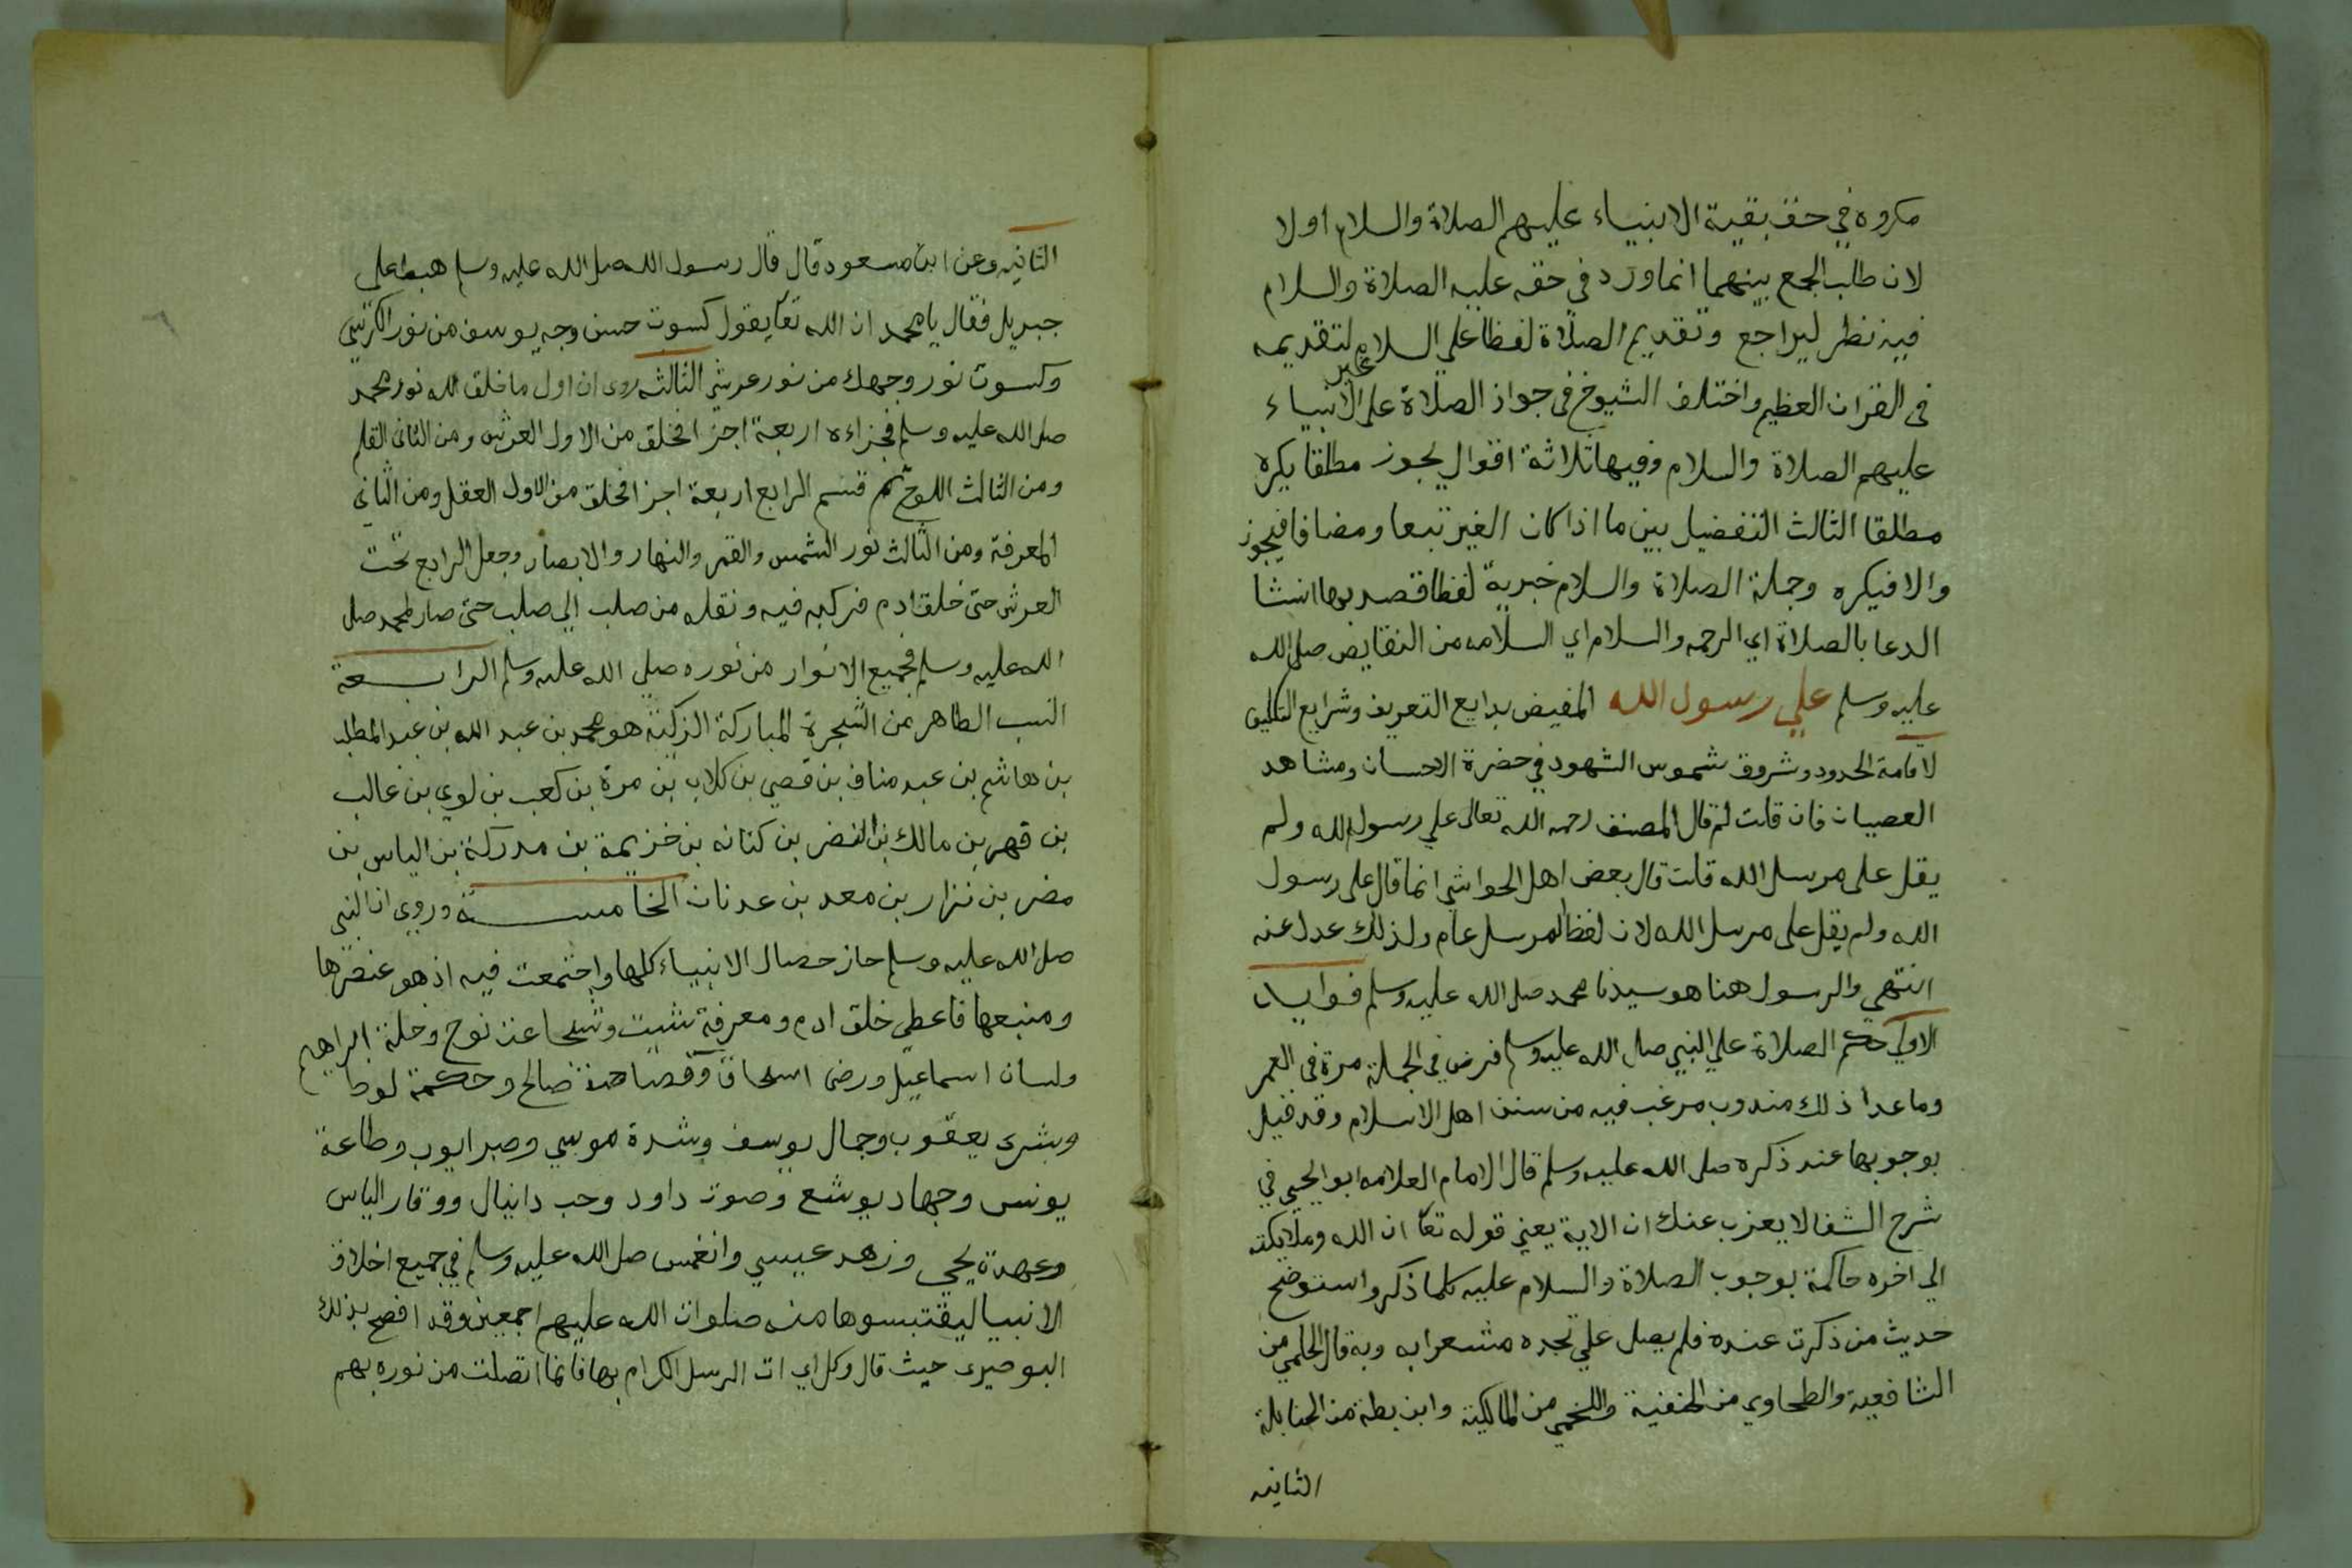 مكروه في حق بقية الانبياء عليهم الصلاة والسلام اولا
لان طلب الجمع بينهما انما ورد في حقه عليه الصلاة والسلام
فيه نظر ليراجع وتقديم الصلاة لفظا علي السلام لتقديمه
في القران العظيم واختلف الشيوخ في جواز الصلاة على غير الانبياء
عليهم الصلاة والسلام وفيها ثلاثة اقوال يجوز مطلقا يكره
مطلقا الثالث التفضيل بين ما اذا كان الغير تبعا ومضافا فيجوز
والا فيكره وجملة الصلاة والسلام خبرية لفظا قصد بها انشا
الدعا بالصلاة اي الرحمه والسلام اي السلامه من النقايص صلى الله
عليه وسلم علي رسول الله المفيض بدايع التعريف وشرايع التكليف
لاقامة الحدود وشروق شموس الشهود في حضرة الاحسان ومشاهد
العصيان فان قلت لم قال المصنف رحمه الله تعالى علي رسول الله ولم
يقل على مرسل الله قلت قال بعض اهل الحواشي انما قال على رسول
الله ولم يقل على مرسل الله لان لفظ المرسل عام ولذلك عدل عنه
انتهي والرسول هنا هو سيدنا محمد صلى الله عليه وسلم فوايد
الاولي حكم الصلاة علي النبي صلى الله عليه وسلم فرض في الجملة مرة في العمر
وما عدا ذلك مندوب مرغب فيه من سنن اهل الاسلام وقد قيل
بوجوبها عند ذكره صلى الله عليه وسلم قال الامام العلامه ابو الحيي في
شرح الشفا لا يعزب عنك ان الاية يعني قوله تعا ان الله وملايكته
الى اخره حاكمة بوجوب الصلاة والسلام عليه كلما ذكر واستوضح
حديث من ذكرت عنده فلم يصل علي تجده مشعرا به وبه قال الحلمي من
الشافعيه والطحاوي من الحنفية واللخمي من المالكية وابن بطة من الحنابلة
الثانيه
الثانيه وعن ابن مسعود قال قال رسول الله صلى الله عليه وسلم هبط على
جبريل فقال يا محمد ان الله تعا يقول كسوت حسن وجه يوسف من نور الكرسي
وكسوت نور وجهك من نور عرشي الثالثه روى ان اول ما خلق الله نور محمد
صلى الله عليه وسلم فجزاءه اربعة اجزا فخلق من الاول العرش ومن الثاني القلم
ومن الثالث اللوح ثم قسم الرابع اربعة اجزا فخلق من الاول العقل ومن الثاني
المعرفة ومن الثالث نور الشمس والقمر والنهار والابصار وجعل الرابع تحت
العرش حتى خلق ادم فركبه فيه ونقله من صلب الي صلب حتى صار لمحمد صلى
الله عليه وسلم فجميع الانوار من نوره صلي الله عليه وسلم الرابعة
النسب الطاهر من الشجرة المباركة الزكية هو محمد بن عبد الله بن عبد المطلب
بن هاشم بن عبد مناف بن قصي بن كلاب بن مرة بن كعب بن لوي بن غالب
بن فهر بن مالك بن النضر بن كنانه بن خزيمة بن مدركة بن الياس بن
مضر بن نزار بن معد بن عدنان الخامسة وروي ان النبي
صلى الله عليه وسلم حاز خصال الانبياء كلها واجتمعت فيه اذ هو عنصرها
ومنبعها فاعطي خلق ادم ومعرفة شيث وشجاعت نوح وخلة ابراهيم
ولسان اسماعيل ورضى اسحاق وفصاحة صالح وحكمة لوط
وبشرى يعقوب وجمال يوسف وشدة موسي وصبر ايوب وطاعة
يونس وجهاد يوشع وصوت داود وحب دانيال ووقار الياس
وعهدة يحيى وزهد عيسي وانغمس صلى الله عليه وسلم في جميع اخلاق
الانبيا ليقتبسوها منه صلوات الله عليهم اجمعين وقد افصح بذلك
البوصيرى حيث قال وكل اي اتى الرسل الكرام بها فانما اتصلت من نوره بهم